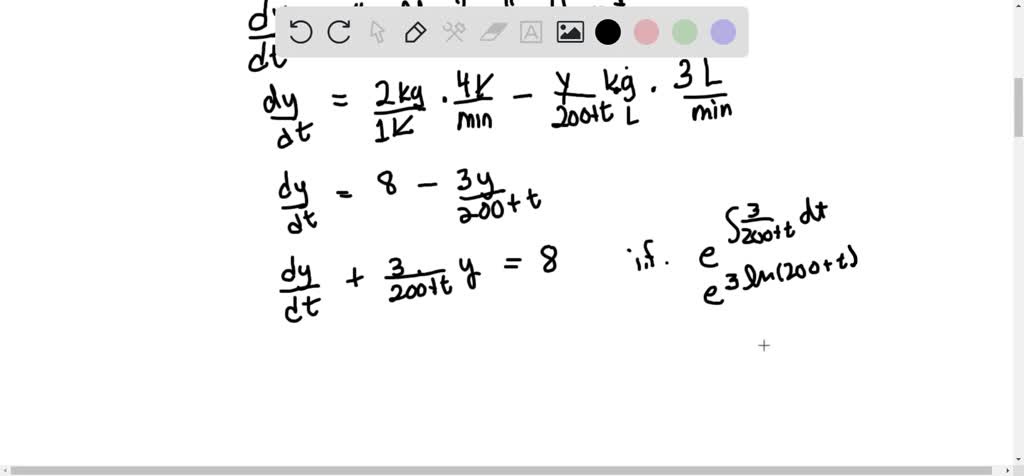 dy/dt
dy/dt = 2kg/1L · 4L/min − y/200+t kg/L · 3L/min
dy/dt = 8 − 3y/200+t
dy/dt + 3/200+t y = 8 i.f. e^∫3/200+t dt
e^3ln(200+t)